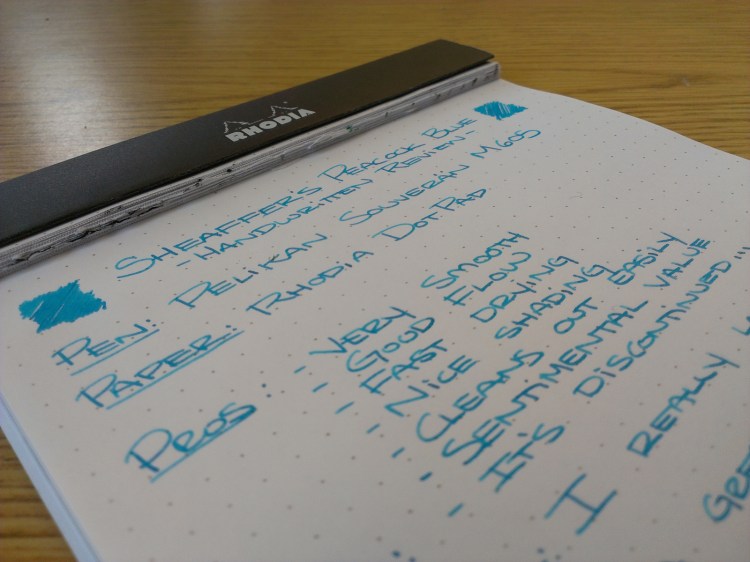 RHODIA
SHEAFFER'S PEACOCK BLUE
- HANDWRITTEN REVIEW -
PEN: PELIKAN SOUVERÄN M605
PAPER: RHODIA DOTPAD
PROS: - VERY SMOOTH
- GOOD FLOW
- FAST DRYING
- NICE SHADING
- CLEANS OUT EASILY
- SENTIMENTAL VALUE
- IT'S DISCONTINUED!!!
I REALLY